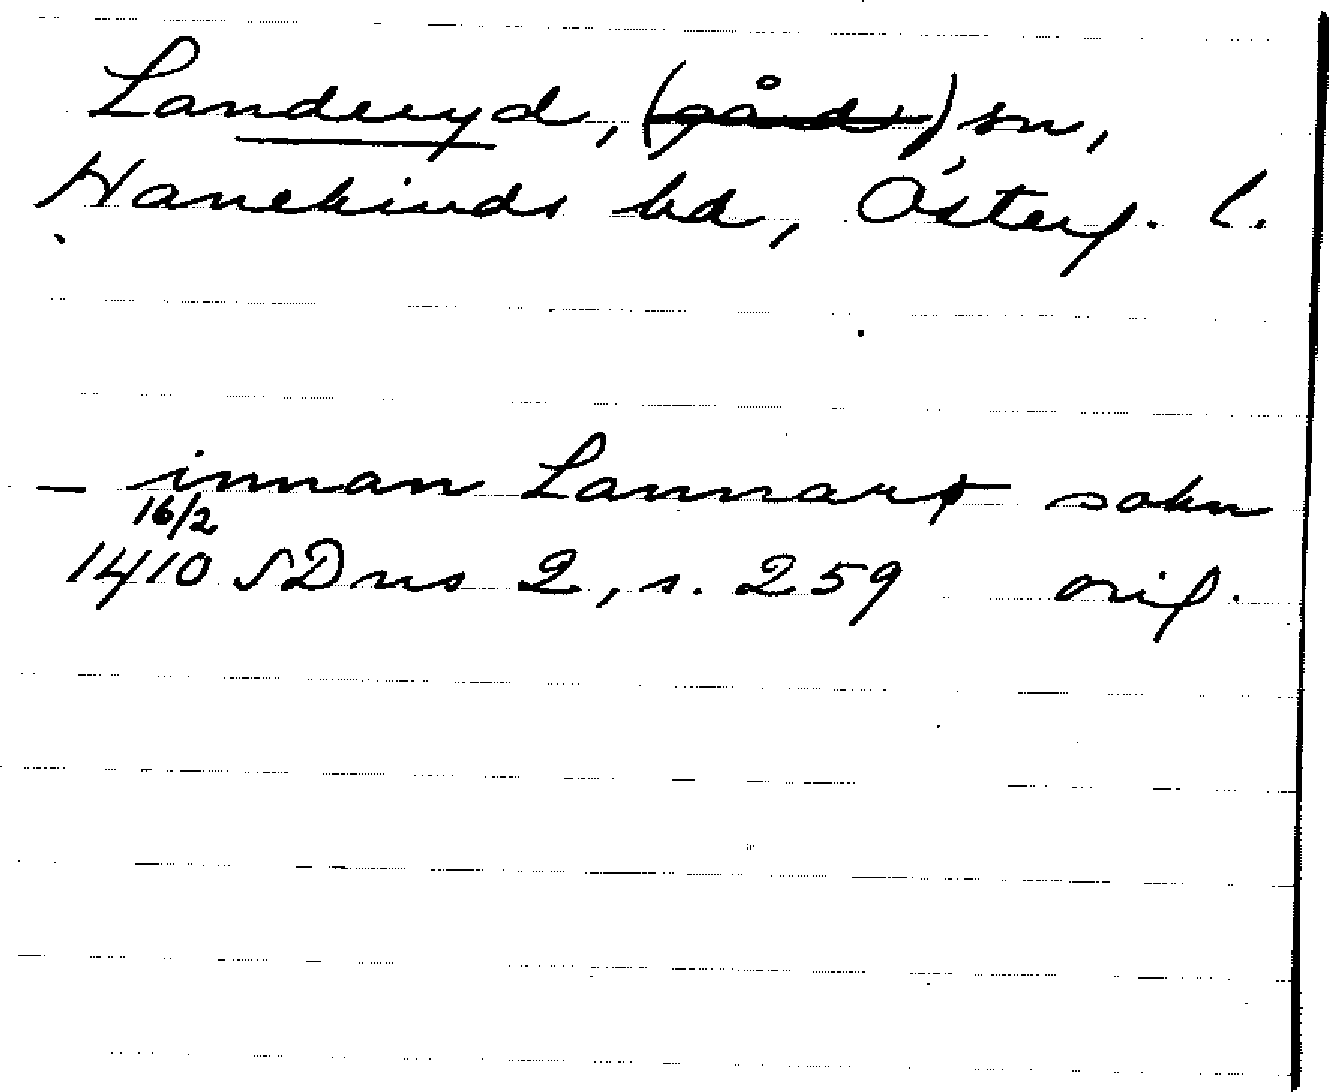 Landeryd, (gård) sn,
Hanekinds hd, Österg. l.
- innan Lannarþ sokn
16/2
1410 SDns 2, s. 259 orig.